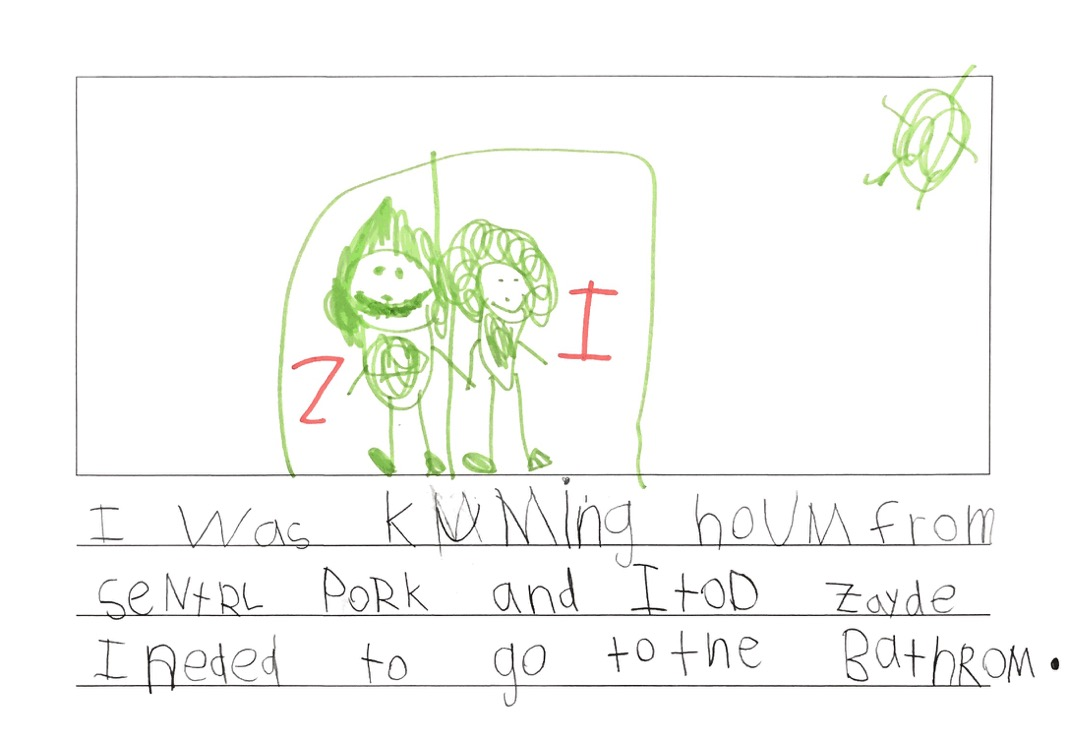 Z
I
I Was KUMing hoUM from
SeNtRL PoRK and I tOD Zayde
I neded to go to the BathROM.